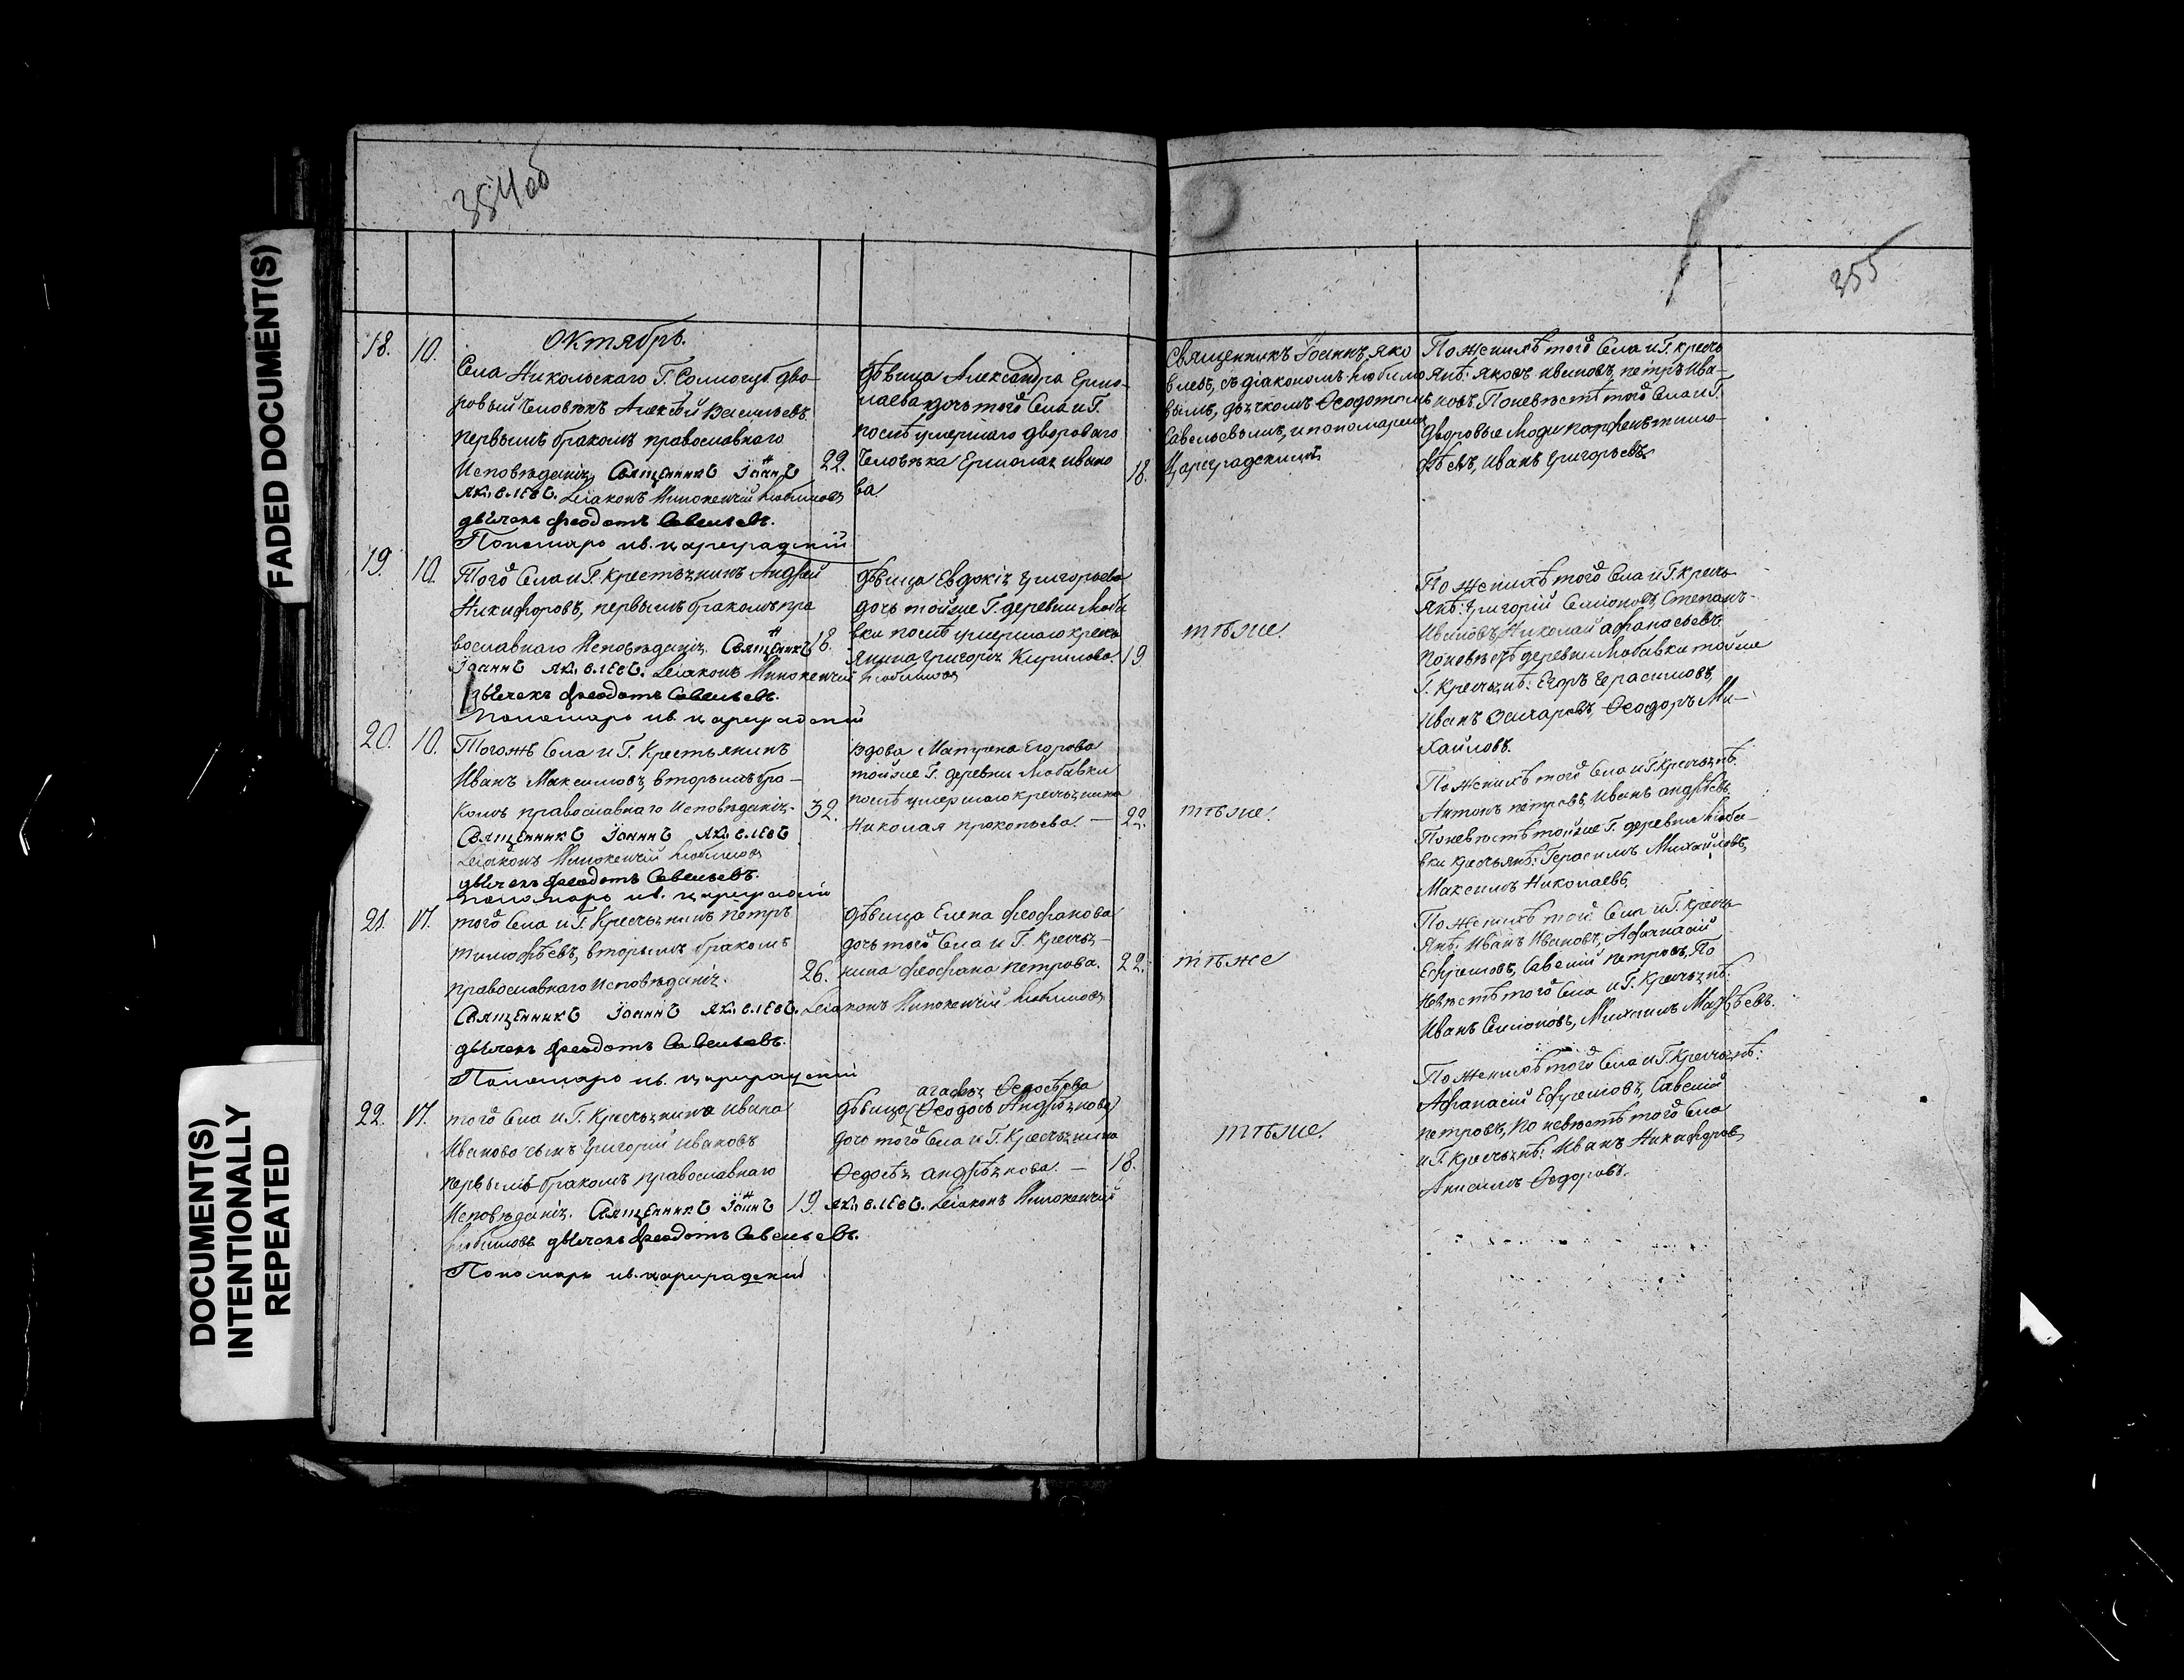 354 об
355
FADED DOCUMENT(S)
DOCUMENT(S)
INTENTIONALLY
REPEATED
Октябрь.
18. 10.
Села Никольскаго Г. Сомогуб. дво-
ровый Человѣкъ Алексѣй Васильевъ
первымъ бракомъ православнаго
Исповѣданія Священникъ Іоаннъ
Яковлевъ. Діаконъ Иннокентій Любимовъ
дьячекъ Феодотъ Савельевъ.
Пономарь ив. цареградскій
22.
дѣвица Александра Ермо-
лаева дочь того Села и Г.
послѣ умершаго двороваго
Человѣка Ермолая Ивано
ва.
18.
Священникъ Іоаннъ Яко
влевъ, съ діакономъ Любимо
вымъ, дьячкомъ Ѳеодотомъ
Савельевымъ, и пономаремъ
Цареградскимъ
По женихѣ того Села и Г. кресть
янѣ: Яковъ ивановъ, петръ Ива-
новъ. По невѣстѣ того Села и Г.
дворовые люди парфенъ тимо-
фѣевъ, Иванъ Григорьевъ.
19. 10.
Того Села и Г. Крестьянинъ Андрей
Никифоровъ, первымъ бракомъ пра
вославнаго Исповѣданія. Священникъ
Іоаннъ Яковлевъ. Діаконъ Иннокентій Любимовъ
дьячекъ Феодотъ Савельевъ.
Пономарь ив. цареградскій
18.
дѣвица Евдокія Григорьева
дочь тойже Г. деревни Люба
вки послѣ умершаго кресть
янина Григорія Кирилова.
19
тѣже.
По женихѣ того Села и Г. кресть
янѣ: Григорій Семіоновъ, Степанъ
Ивановъ, Николай афанасьевъ.
По невѣстѣ деревни Любавки тойже
Г. крестьянѣ: Егоръ Герасимовъ,
Иванъ Захаровъ, Ѳеодоръ Ми-
хайловъ.
20. 10.
Тогожъ Села и Г. Крестьянинъ
Иванъ Максимовъ, вторымъ бра-
комъ православнаго Исповѣданія.
Священникъ Іоаннъ Яковлевъ
Діаконъ Иннокентій Любимовъ
дьячекъ Феодотъ Савельевъ.
Пономарь ив. цареградскій
32.
вдова Матрена Егорова
тойже Г. деревни Любавки
послѣ умершаго крестьянина
Николая прокопьева. —
22.
тѣже.
По женихѣ того Села и Г. Крестьянѣ:
Антонъ петровъ, Иванъ андрѣевъ.
По невѣстѣ тойже Г. деревни Люба-
вки крестьянѣ: Герасимъ Михайловъ,
Максимъ Николаевъ.
21. 17.
того Села и Г. Крестьянинъ петръ
тимофѣевъ, вторымъ бракомъ
православнаго Исповѣданія.
Священникъ Іоаннъ Яковлевъ. Діаконъ Иннокентій Любимовъ
дьячекъ Феодотъ Савельевъ.
Пономарь ив. цареградскій
26.
дѣвица Елена Феофанова
дочь того Села и Г. крестья-
нина Феофана петрова.
22.
тѣже
По женихѣ того Села и Г. кресть
янѣ: Иванъ Ивановъ, Афанасій
Ефремовъ, Савелій петровъ, По
невѣстѣ того Села и Г. Крестьянѣ:
Иванъ Семіоновъ, Михаилъ Матвѣевъ.
22. 17.
того Села и Г. Крестьянина Ивана
Иванова сынъ Григорій Ивановъ
первымъ бракомъ православнаго
Исповѣданія. Священникъ Іоаннъ
Яковлевъ. Діаконъ Иннокентій
Любимовъ дьячекъ Феодотъ Савельевъ.
Пономарь ив. цареградскій
19.
агафья Ѳедосѣева
дѣвица (Ѳеодось Андрѣянова)
дочь того Села и Г. Крестьянина
Ѳедосѣя андрѣянова. —
18.
тѣже.
По женихѣ того Села и Г. Крестьянѣ:
Афанасій Ефремовъ, Савелій
петровъ, по невѣстѣ того Села
и Г. Крестьянѣ: Иванъ Никифоровъ,
Анисимъ Ѳедоровъ.